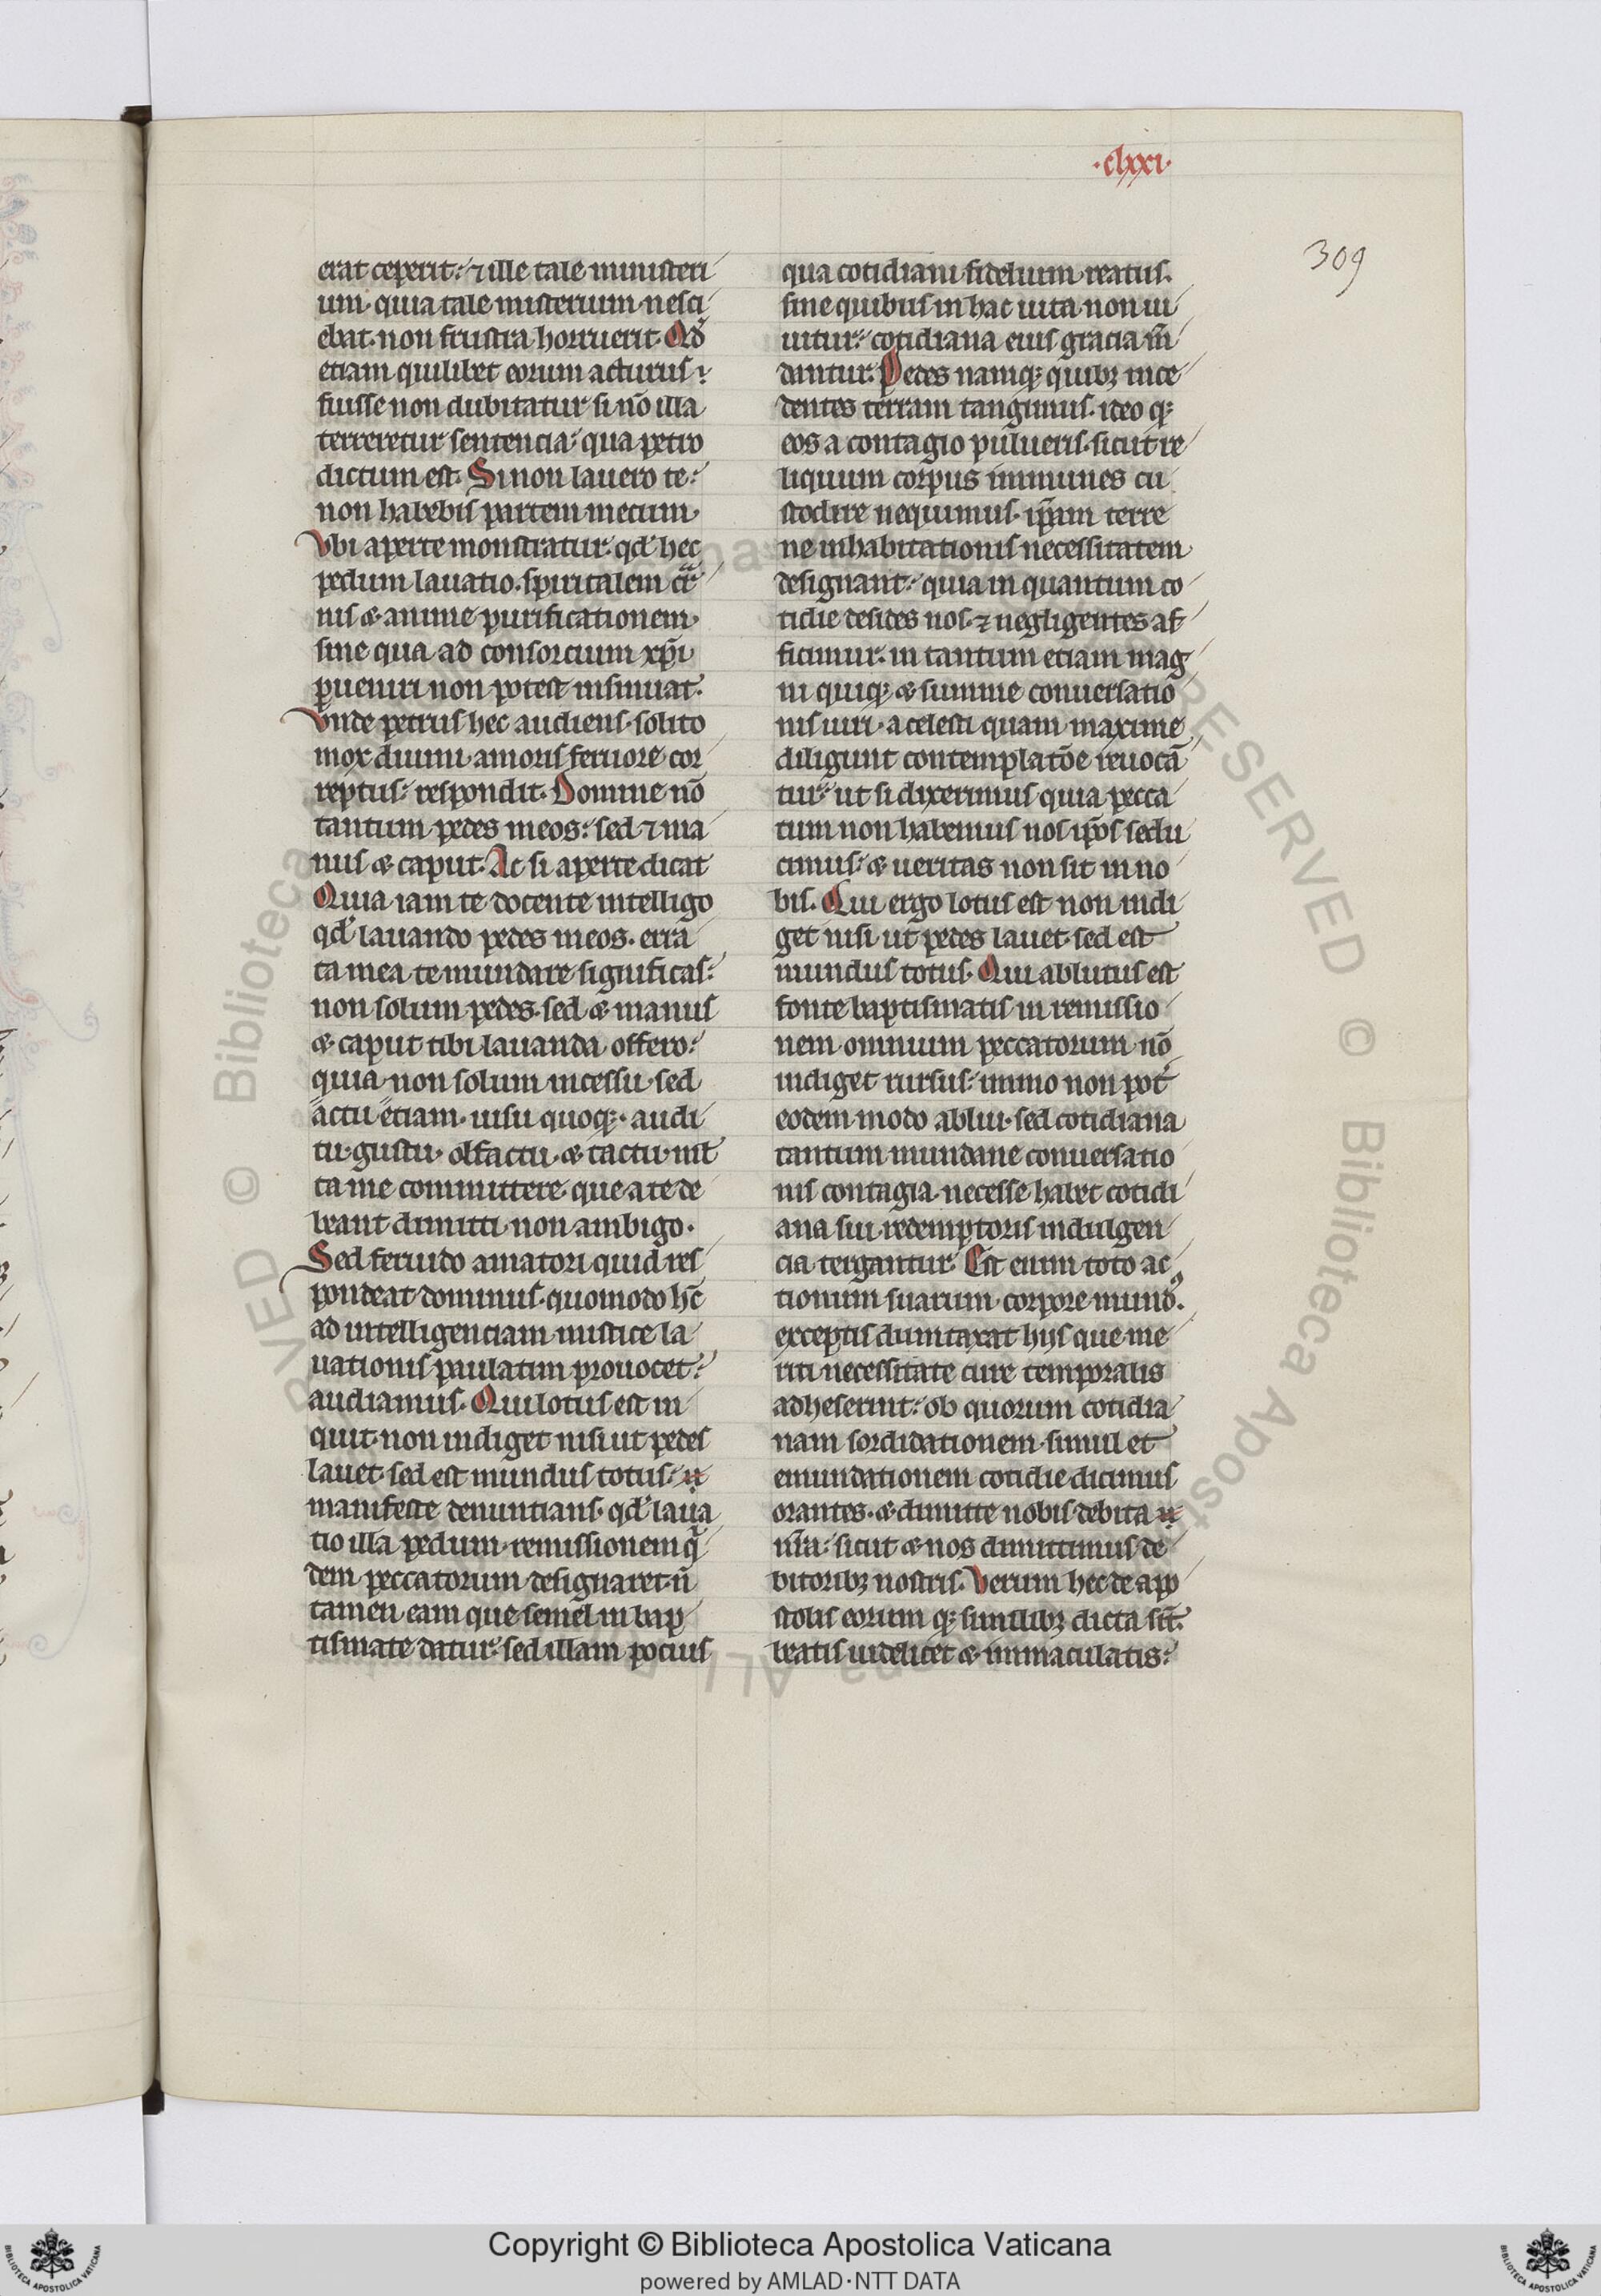 ·clxxi·
309
erat ceperit: ⁊ ille tale ministeri
um· quia tale misterium nesci
ebat· non frustra horruerit. Qd
etiam quilibet eorum acturus
fuisse non dubitatur si nō illa
terreretur sentencia: qua petro
dictum est. Si non lauero te:
non habebis partem mecum·
Vbi aperte monstratur· qd' hec
pedum lauatio· spiritalem
nis & anime purificationem·
sine qua ad consorcium xp̄i
ꝑueniri non potest insinuat.
Vnde petrus hec audiens· solito
mox diuini amoris feruore cor
reptus: respondit. Domine nō
tantum pedes meos: sed ⁊ ma
nus & caput. Ac si aperte dicat
Quia iam te docente intelligo
qd' lauando pedes meos· erra
ta mea te mundare significas:
non solum pedes· sed & manus
& caput tibi lauanda offero:
quia non solum incessu· sed
actu etiam· uisu quoqꝫ· audi
tu· gustu· olfactu· & tactu· mĺ
ta me committere que a te de
beant dimitti· non ambigo·
Sed feruido amatori quid res
pondeat dominus· quomodo hc̄
ad intelligenciam mistice la
uationis paulatim prouocet:
audiamus. Qui lotus est in
quit· non indiget nisi ut pedes
lauet· sed est mundus totus:
manifeste denuntians· qd' laua
tio illa pedum· remissionem q̄
dem peccatorum designaret· ñ
tamen eam que semel in bap
tismate datur: sed illam pocius
qua cotidiani fidelium reatus·
sine quibus in hac uita non ui
uitur: cotidiana eius gracia m̄
dantur. Pedes namqꝫ quibꝫ ince
dentes terram tangimus· ideo qꝫ
eos a contagio pulueris· sicut re
liquum corpus immunes cu
stodire nequimus· ip̄am terre
ne inhabitationis necessitatem
designant: quia in quantum co
tidie desides nos· ⁊ negligentes af
ficimur· in tantum etiam mag
ni quiqꝫ & summe conuersatio
nis uiri· a celesti quam maxime
diligunt contemplatōe reuocā
tur: ut si dixerimus quia pecca
tum non habemus nos ip̄os sedu
cimus: & ueritas non sit in no
bis. Qui ergo lotus est non indi
get nisi ut pedes lauet· sed est
mundus totus. Qui ablutus est
fonte baptismatis in remissio
nem omnium peccatorum· nō
indiget rursus: immo non pot̄
eodem modo ablui· sed cotidiana
tantum mundane conuersatio
nis contagia· necesse habet cotidi
ana sui redemptoris indulgen
cia tergantur. Est enim toto ac
tionum suarum corpore mundꝰ·
exceptis dumtaxat hijs que me
nti necessitate cure temporalis
adheserint: ob quorum cotidia
nam sordidationem· simul et
emundationem cotidie dicimus
orantes· & dimitte nobis debita
nr̄a: sicut & nos dimittimus de
bitoribꝫ nostris. Verum hec de apo
stolis eorum qꝫ similibꝫ dicta st̄·
beatis uidelicet & immaculatis:
© Biblioteca Apostolica Vaticana ALL RIGHTS RESERVED
Copyright © Biblioteca Apostolica Vaticana
powered by AMLAD·NTT DATA
BIBLIOTECA APOSTOLICA VATICANA
BIBLIOTECA APOSTOLICA VATICANA